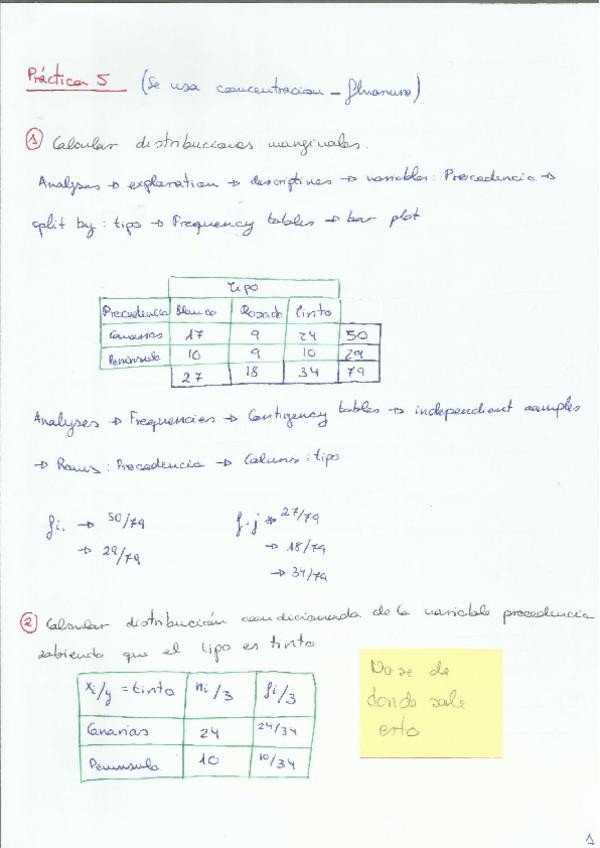 Práctica 5 (Se usa concentracion_fluoruro)
1 Calcular distribuciones marginales.
Analyses → exploration → descriptives → variables: Procedencia →
split by: tipo → Frequency tables → bar plot
tipo
Procedencia Blanco Rosado tinto
Canarias 17 9 24 50
Peninsula 10 9 10 29
27 18 34 79
Analyses → Frequencies → Contigency tables → independient samples
→ Rows: Procedencia → Colums: tipo
fi. → 50/79 f.j → 27/79
→ 29/79 → 18/79
→ 34/79
2 Calcular distribución condicionada de la variable procedencia
sabiendo que el tipo es tinto
xi/y = tinto ni/3 fi/3
Canarias 24 24/34
Peninsula 10 10/34
No se de
donde sale
esto
1